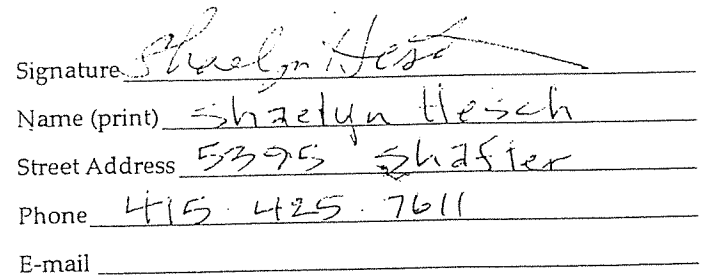 Signature Shaelyn Hesch
Name (print) Shaelyn Hesch
Street Address 5395 Shafter
Phone 415.425.7611
E-mail